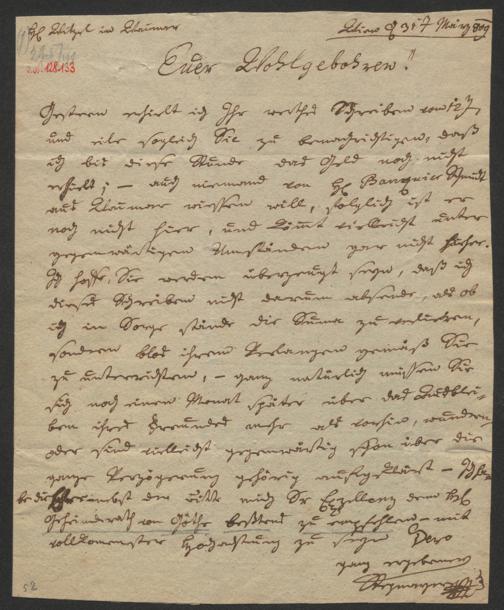 H Witzel in Weimar
Wien d 31t März 809
Euer Wohlgebohren!
Gestern erhielt ich Ihr werthes Schreiben vom 12 J
und eile sogleich Sie zu benachrichtigen, daß
ich bis diese Stunde das Geld noch nicht
erhielt; – auch niemand von H Banquier
aus Weimar wissen will, folglich ist er
noch nicht hier, und kömmt vielleicht unter
gegenwärtigen Umständen gar nicht hierher.
Ich hoffe, Sie werden überzeugt seyn, daß ich
dieses Schreiben nicht darum absende, als ob
ich in Sorge stände die Suma zu verlieren,
sondern blos ihrem Verlangen gemäß Sie
zu unterrichten, – ganz natürlich müssen Sie
sich noch einen Monat später über das Ausblei-
ben ihres Freundes mehr als vorhin, wundern
oder sind vielleicht gegenwärtig schon über die
ganze Verzögerung gehörig aufgeklärt –
nebst der Bitte mich Sr Exzellenz dem H
Geheimrath von Göthe bestens zu empfehlen – mit
vollkomenster Hochachtung zu seyn Dero
ganz ergebener
Stegmayer
52